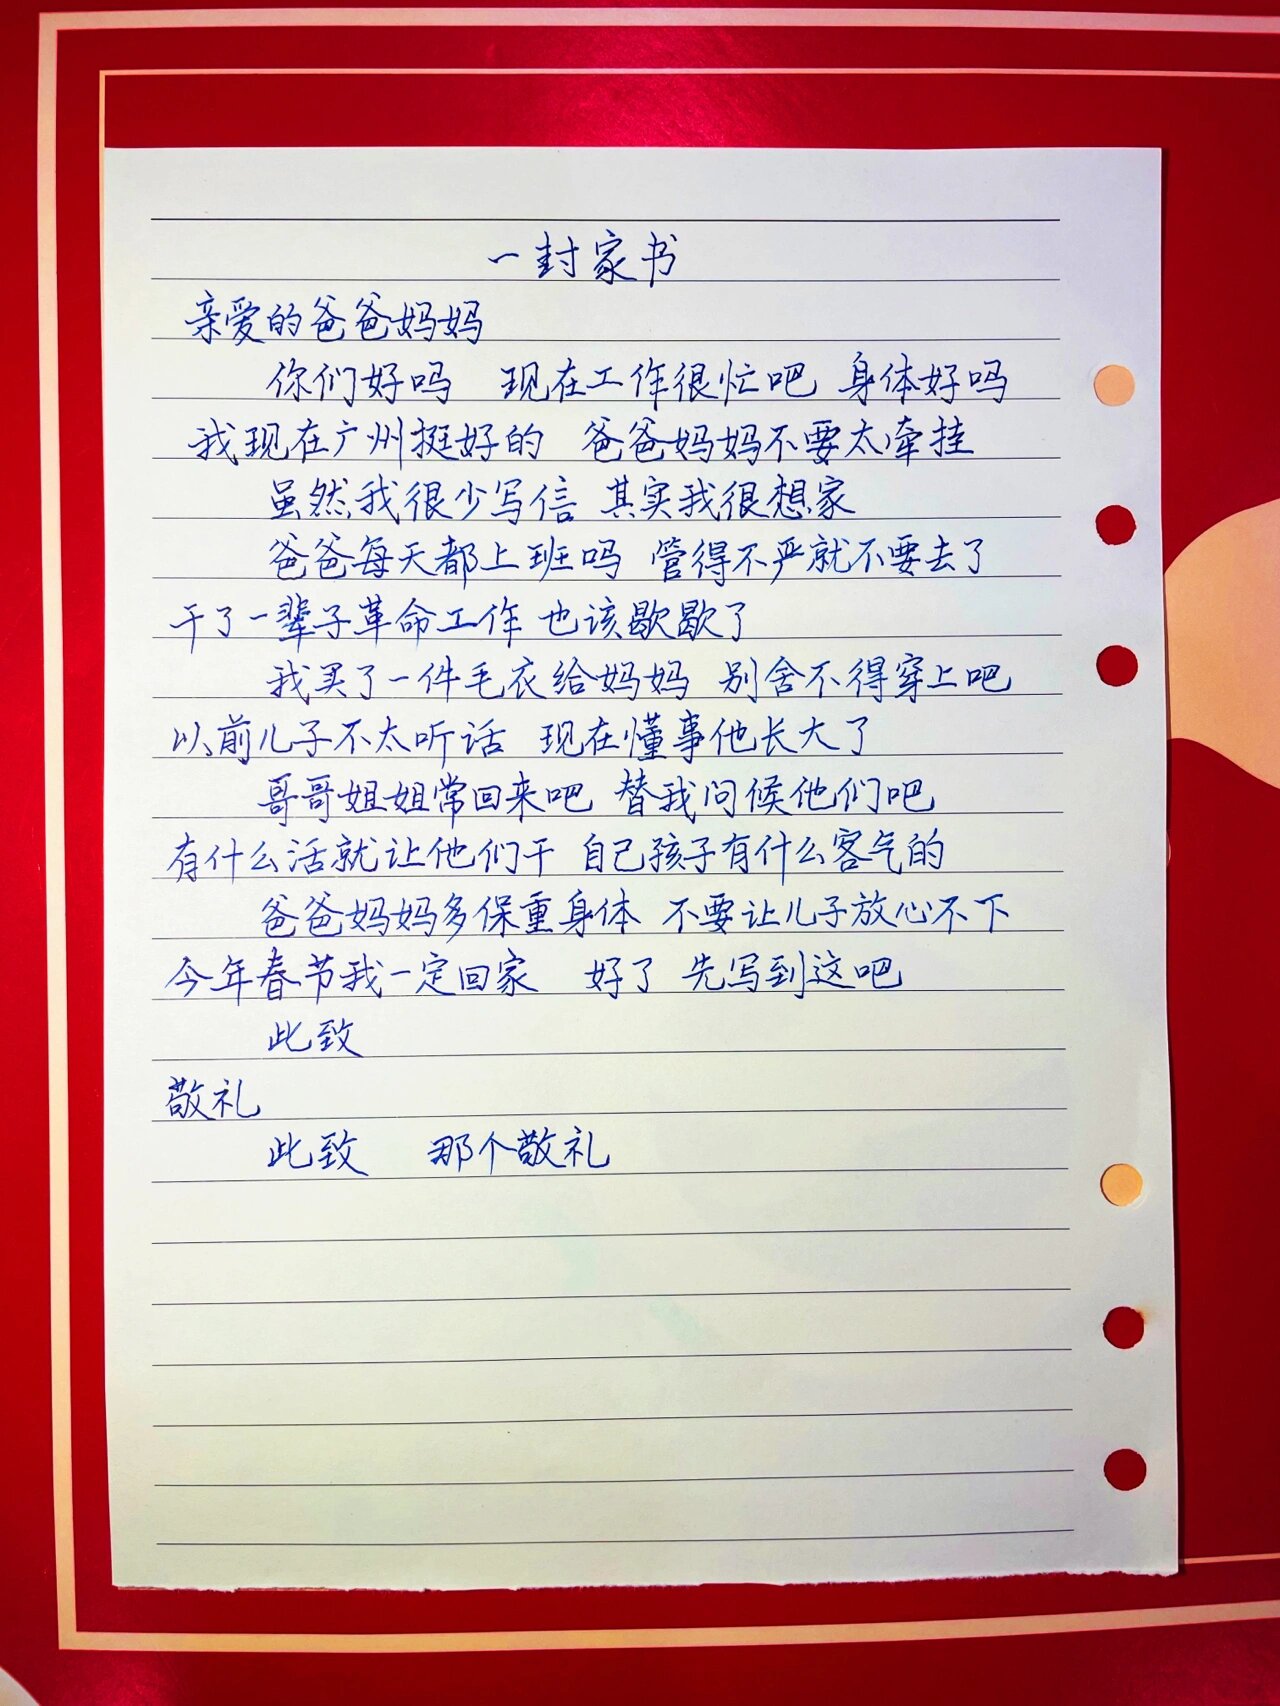 一封家书
亲爱的爸爸妈妈
你们好吗 现在工作很忙吧 身体好吗
我现在广州挺好的 爸爸妈妈不要太牵挂
虽然我很少写信 其实我很想家
爸爸每天都上班吗 管得不严就不要去了
干了一辈子革命工作 也该歇歇了
我买了一件毛衣给妈妈 别舍不得穿上吧
以前儿子不太听话 现在懂事他长大了
哥哥姐姐常回来吧 替我问候他们吧
有什么活就让他们干 自己孩子有什么客气的
爸爸妈妈多保重身体 不要让儿子放心不下
今年春节我一定回家 好了 先写到这吧
此致
敬礼
此致 那个敬礼